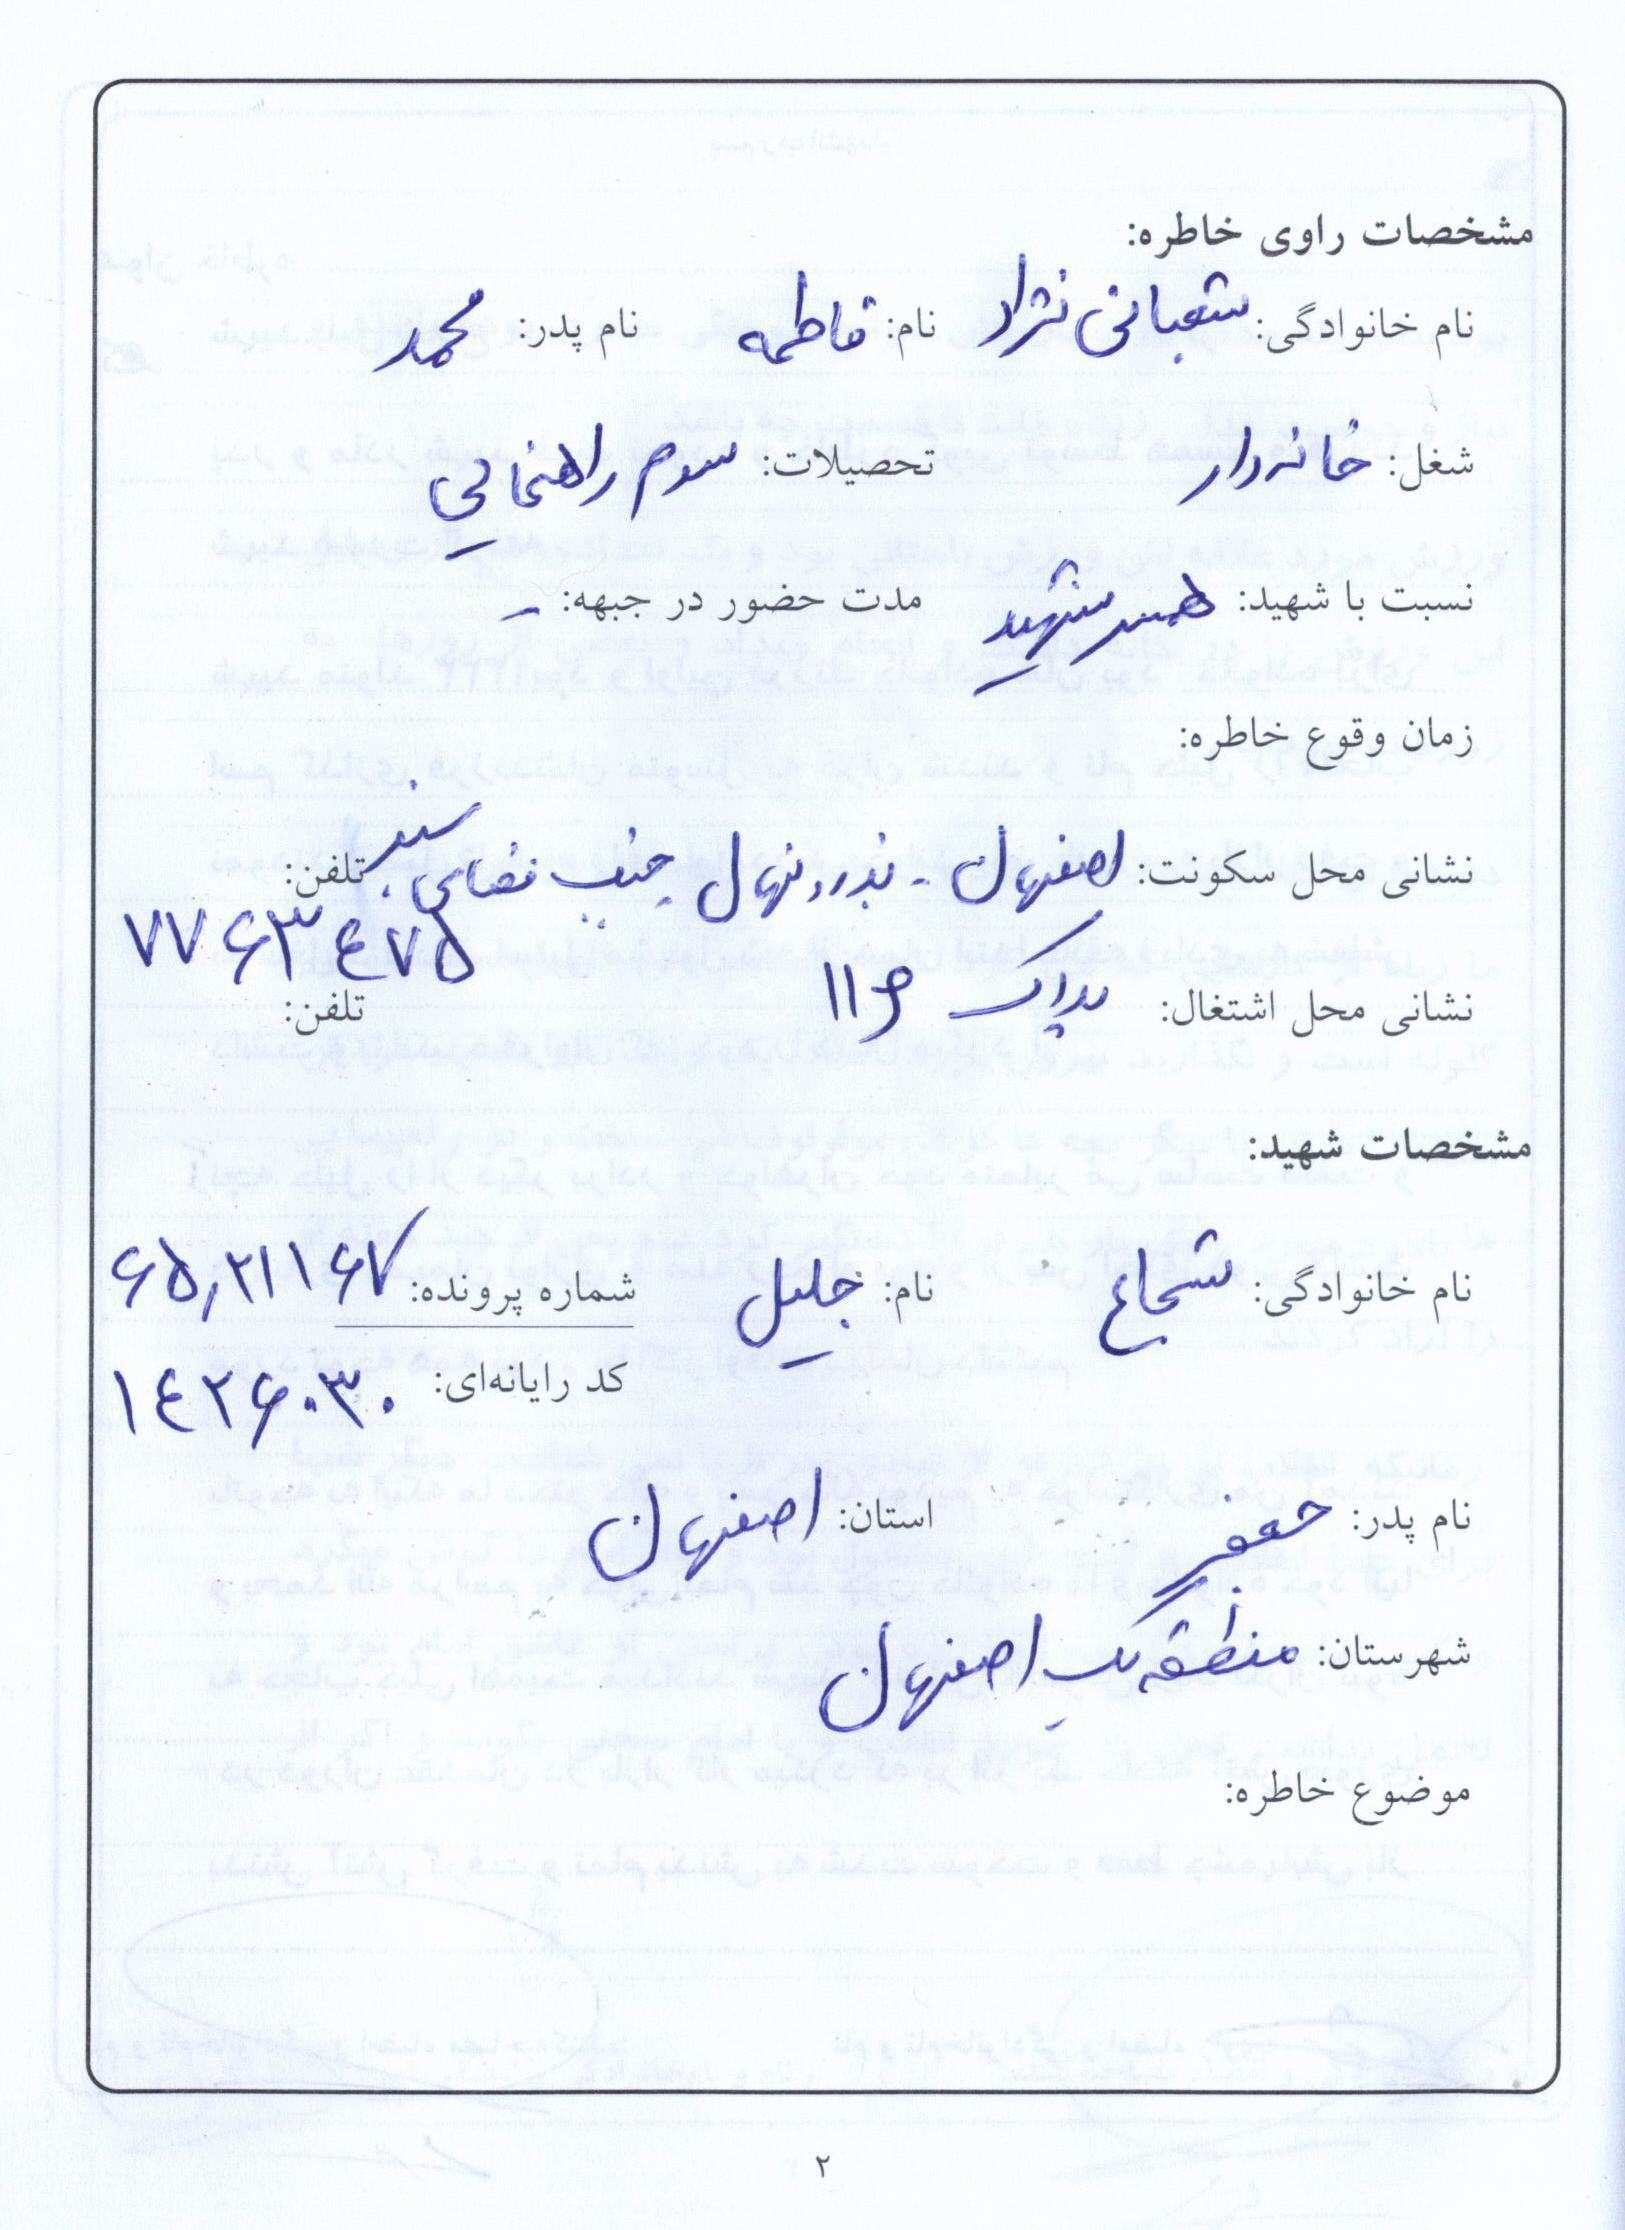 مشخصات راوی خاطره:
نام خانوادگی: شعبانی نژاد نام: فاطمه نام پدر: محمد
شغل: خانه‌دار تحصیلات: سوم راهنمایی
نسبت با شهید: همسر شهید مدت حضور در جبهه: -
زمان وقوع خاطره:
نشانی محل سکونت: اصفهان - بهار جنب فضای سبز تلفن:
۷۷۶۳۴۷۵
نشانی محل اشتغال: پلاک ۱۱۶ تلفن:
مشخصات شهید:
نام خانوادگی: شجاع نام: جلیل شماره پرونده: ۶۵٫۲۱۱۶۷
کد رایانه‌ای: ۱۴۲۶۰۳۰
نام پدر: جعفر استان: اصفهان
شهرستان: منطقه یک اصفهان
موضوع خاطره:
۲